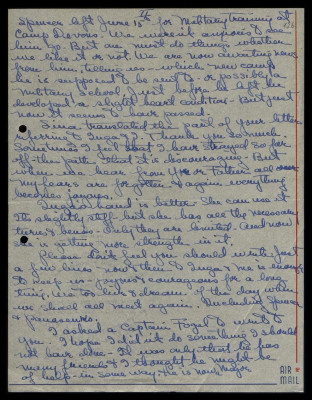 Spencer left June 15th for Military training at
Camp Devens. We weren't anxious to see
him go. But one must do things whether
we like it or not. We are now awaiting news
from him, telling us - which new camp
he is supposed to be sent to - or possibly a
military School, just before he left he
developed a slight heart condition - But just
now it seems to have passed.
Sina translated the part of your letter
referring to Inga & I. Thank you so much.
Sometimes I feel that I have strayed so far
off the path that it is discouraging - But
when we hear from you or Father all
my fears are forgotten & again everything
becomes joyous.
Inga's hand is better. She can use it
tho slightly stiff but she has all the necessary
turns & bends - Tho they are limited. And now
she is getting more strength in it.
Please don't feel you should write. Just
a few lines now & then to Inga & me is enough
to keep us - joyous & courageous for a long
time, we too live & dream of the day when
we shall all meet again. Including Spencer
&
I asked a Captain Fogel to write to
You. I hope I didn't do something I should
not have done - It was only that he has
many friends & I thought he might be
of help in some way. He is now Major
AIR MAIL